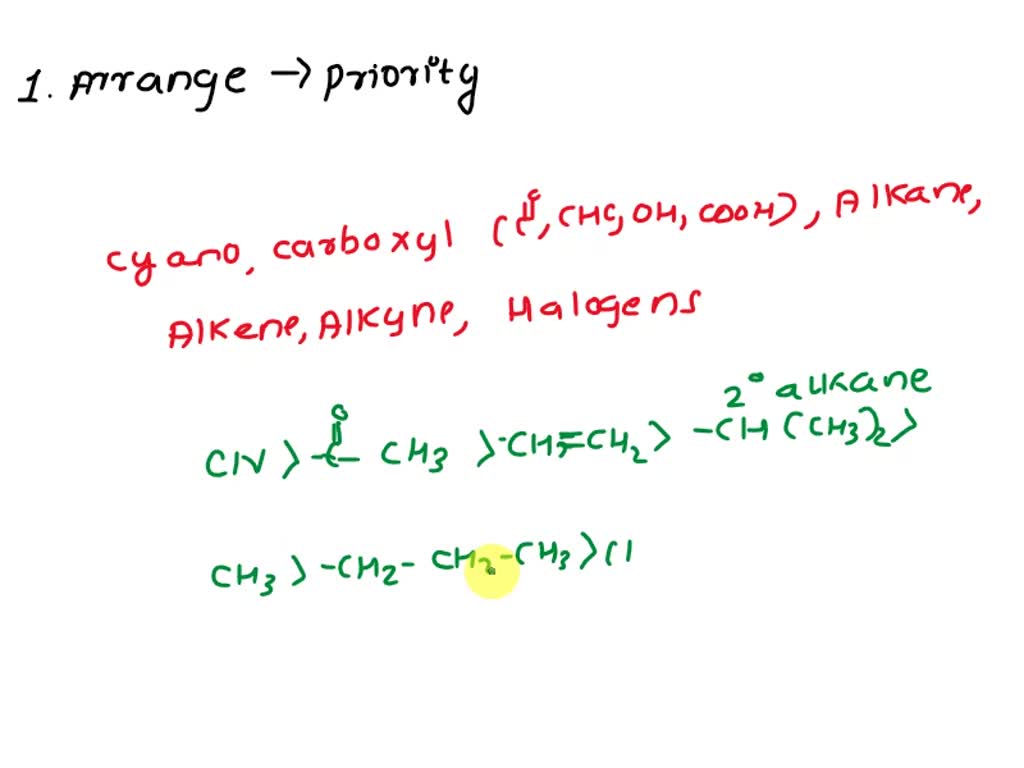 1. Arrange → priority
cyano, carboxyl (C=O, CHO, OH, COOH), Alkane,
Alkene, Alkyne, Halogens
2° alkane
O
CN > -C- CH3 > -CH=CH2 > -CH(CH3)2 >
CH3 > -CH2-CH2-CH3 > Cl